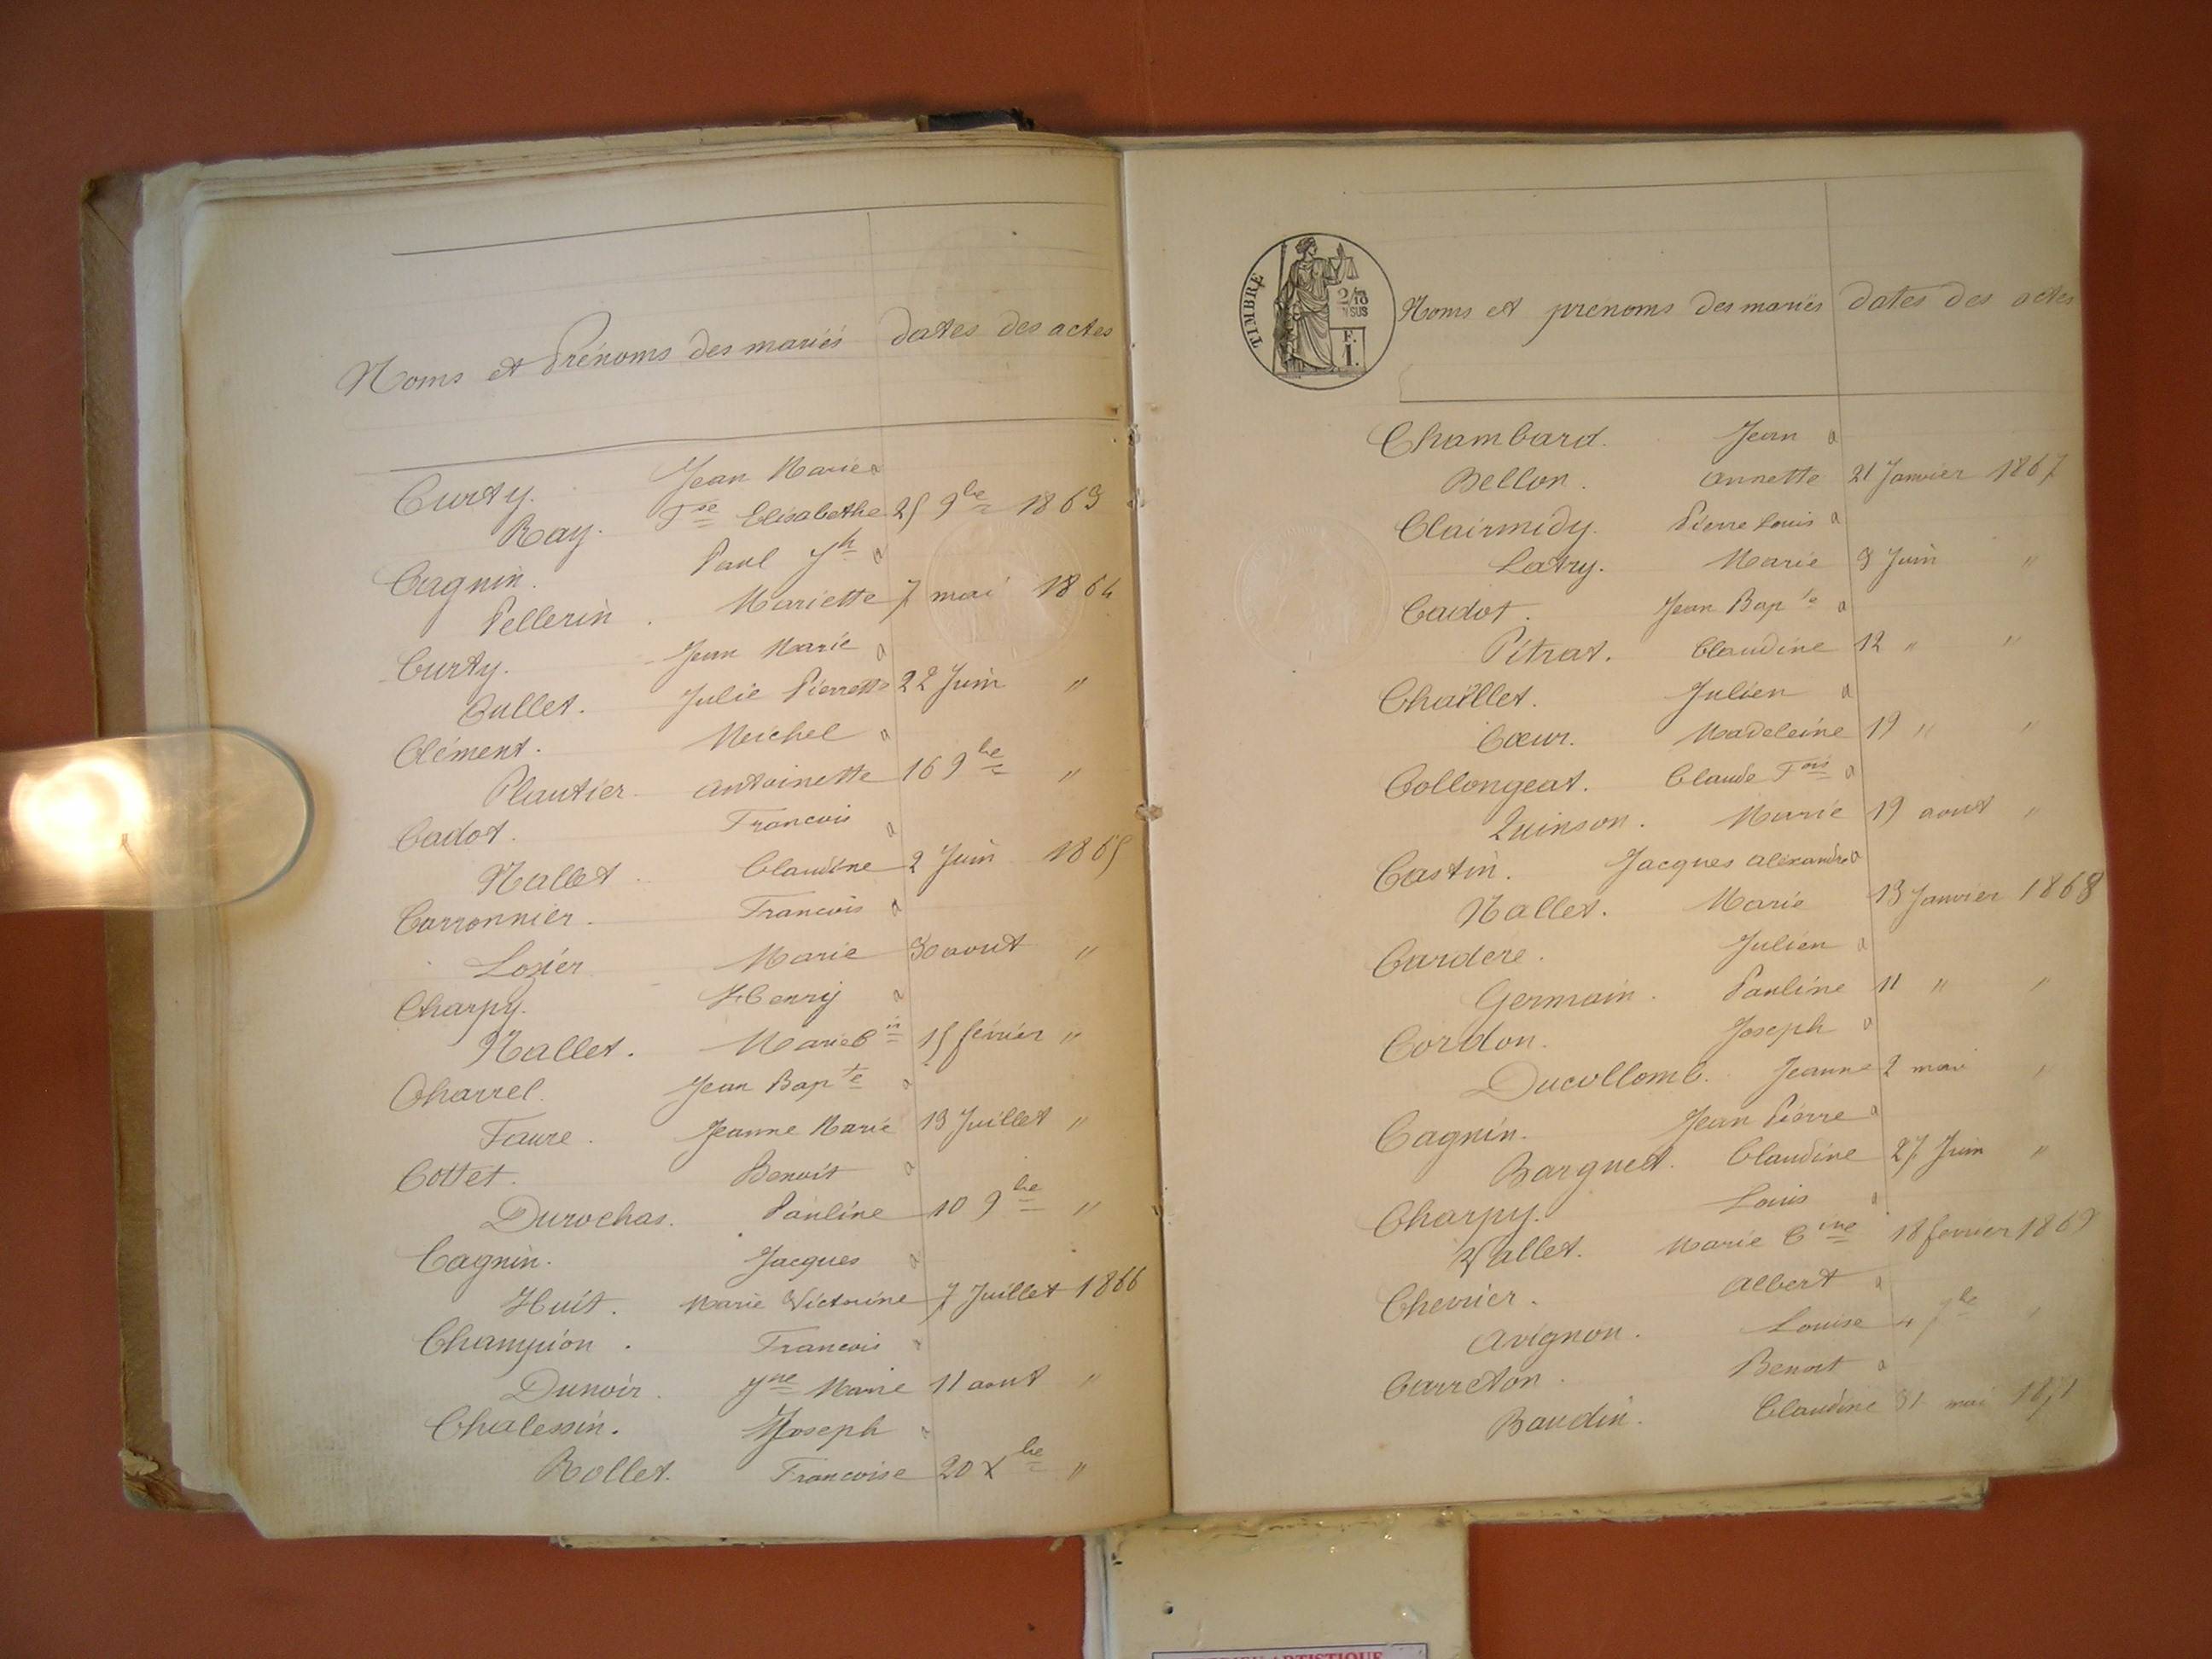 Noms et Prénoms des mariés dates des actes
Curty. Jean Marie a
Ray. Fse Elisabethe 25 9bre 1863
Cagnin. Paul Jh a
Pellerin. Mariette 7 mai 1864
Curty. Jean Marie a
Cullet. Julie Pierrette 22 Juin "
Clément. Michel a
Plautier. Antoinette 16 9bre "
Cadot. Francois a
Nallet Claudine 2 Juin 1865
Carronnier. Francois a
Lozier Marie 30 aout "
Charpy. Henry a
Nallet. Marie Cin 15 février "
Charrel. Jean Bapte a
Faure. Jeanne Marie 13 Juillet "
Cottet. Benoit a
Durochas. Pauline 10 9bre "
Cagnin. Jacques a
Huit. Marie Victorine 7 Juillet 1866
Champion. Francois a
Dunoir. Jne Marie 11 aout "
Chalessin. Joseph a
Rollet. Francoise 20 Xbre "
TIMBRE
2/10
EN SUS
F.
I.
Noms et prénoms des mariés dates des actes
Chambard. Jean a
Bellon. Annette 21 Janvier 1867
Clairmidy. Pierre Louis a
Latry. Marie 3 Juin "
Cadot. Jean Bapte a
Pitrat. Claudine 12 " "
Chaillet. Julien a
Cœur. Madeleine 19 " "
Collongeat. Claude Fois a
Quinson. Marie 19 aout "
Castin. Jacques Alexandre a
Nallet. Marie 13 Janvier 1868
Cardere. Julien a
Germain. Pauline 11 " "
Cordon. Joseph a
Ducollomb. Jeanne 2 mai "
Cagnin. Jean Pierre a
Barguet. Claudine 27 Juin "
Charpy. Louis a
Vallet. Marie Cine 18 fevrier 1869
Chevrier. Albert a
Avignon. Louise 4 7bre "
Carreton. Benoit a
Baudin. Claudine 31 mai 1871